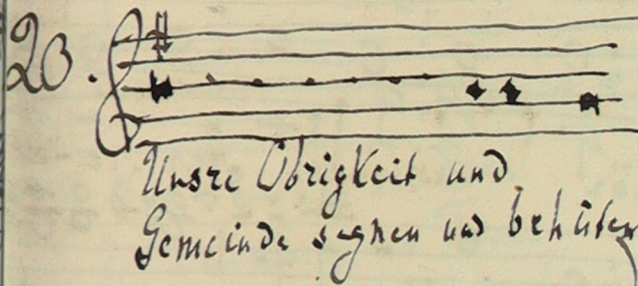 20.
Unsre Obrigkeit und
Gemeinde segnen und behüten